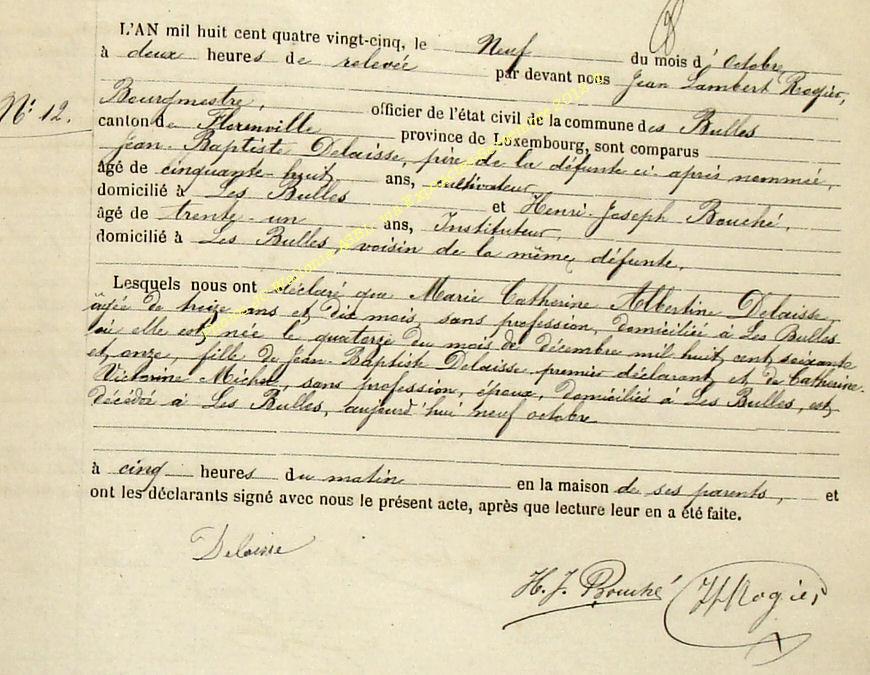 L'AN mil huit cent quatre vingt-cinq, le Neuf du mois d'Octobre,
à deux heures de relevée par devant nous Jean Lambert Rogier,
N° 12.
Bourgmestre, officier de l'état civil de la commune des Bulles
canton de Florenville province de Luxembourg, sont comparus
Jean-Baptiste Delaisse, père de la défunte ci-après nommée,
âgé de cinquante-huit ans, cultivateur,
domicilié à Les Bulles et Henri-Joseph Bouché,
âgé de trente-un ans, Instituteur,
domicilié à Les Bulles, voisin de la même défunte.
Lesquels nous ont déclaré que Marie Catherine Albertine Delaisse,
âgée de treize ans et dix mois, sans profession, domiciliée à Les Bulles
où elle est née le quatorze du mois de décembre mil huit cent soixante
et onze, fille de Jean-Baptiste Delaisse premier déclarant et de Catherine
Victorine, sans profession, époux, domiciliés à Les Bulles, est
décédée à Les Bulles, aujourd'hui neuf octobre
à cinq heures du matin en la maison de ses parents, et
ont les déclarants signé avec nous le présent acte, après que lecture leur en a été faite.
Delaisse
H. J. Bouché Rogier